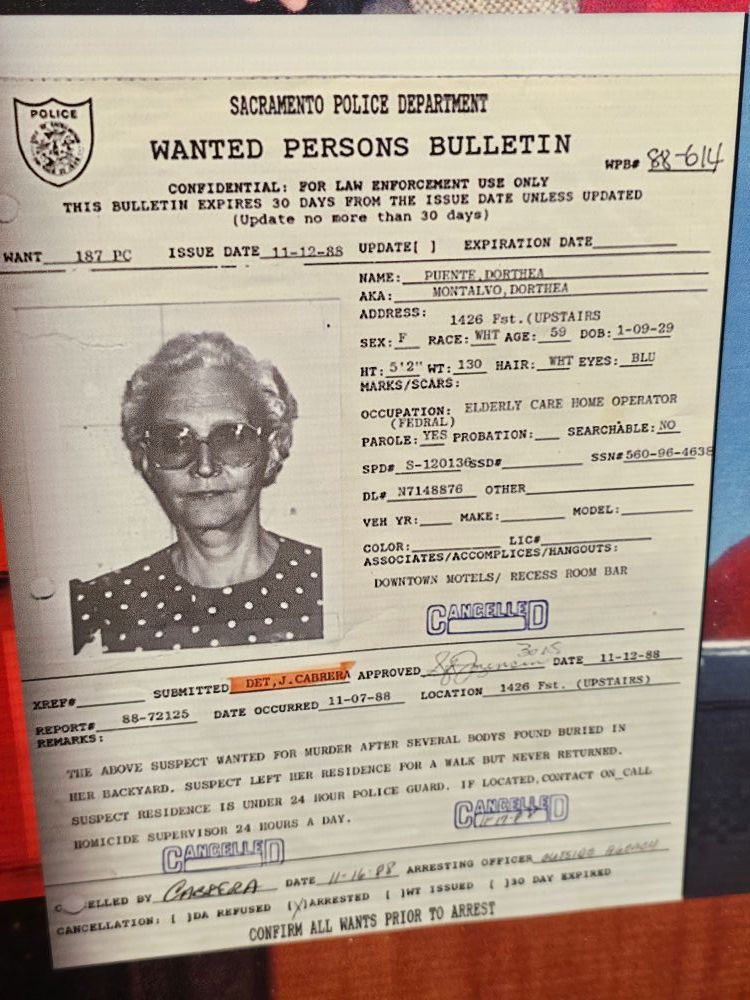 POLICE
SACRAMENTO POLICE DEPARTMENT
WANTED PERSONS BULLETIN
WPB# 88-614
CONFIDENTIAL: FOR LAW ENFORCEMENT USE ONLY
THIS BULLETIN EXPIRES 30 DAYS FROM THE ISSUE DATE UNLESS UPDATED
(Update no more than 30 days)
WANT 187 PC ISSUE DATE 11-12-88 UPDATE[ ] EXPIRATION DATE
NAME: PUENTE,DORTHEA
AKA: MONTALVO,DORTHEA
ADDRESS: 1426 Fst.(UPSTAIRS
SEX: F RACE: WHT AGE: 59 DOB: 1-09-29
HT: 5'2" WT: 130 HAIR: WHT EYES: BLU
MARKS/SCARS:
OCCUPATION: ELDERLY CARE HOME OPERATOR
(FEDRAL)
PAROLE: YES PROBATION: SEARCHABLE: NO
SPD# S-120136 SSD# SSN# 560-96-4638
DL# N7148876 OTHER
VEH YR: MAKE: MODEL:
COLOR: LIC#
ASSOCIATES/ACCOMPLICES/HANGOUTS:
DOWNTOWN MOTELS/ RECESS ROOM BAR
CANCELLED
XREF# SUBMITTED DET,J.CABRERA APPROVED DATE 11-12-88
REPORT# 88-72125 DATE OCCURRED 11-07-88 LOCATION 1426 Fst. (UPSTAIRS)
REMARKS:
THE ABOVE SUSPECT WANTED FOR MURDER AFTER SEVERAL BODYS FOUND BURIED IN
HER BACKYARD. SUSPECT LEFT HER RESIDENCE FOR A WALK BUT NEVER RETURNED.
SUSPECT RESIDENCE IS UNDER 24 HOUR POLICE GUARD. IF LOCATED,CONTACT ON_CALL
HOMICIDE SUPERVISOR 24 HOURS A DAY.
CANCELLED
CANCELLED
ELLED BY CABRERA DATE 11-16-88 ARRESTING OFFICER OUTSIDE AGENCY
CANCELLATION: [ ]DA REFUSED [X]ARRESTED [ ]WT ISSUED [ ]30 DAY EXPIRED
CONFIRM ALL WANTS PRIOR TO ARREST